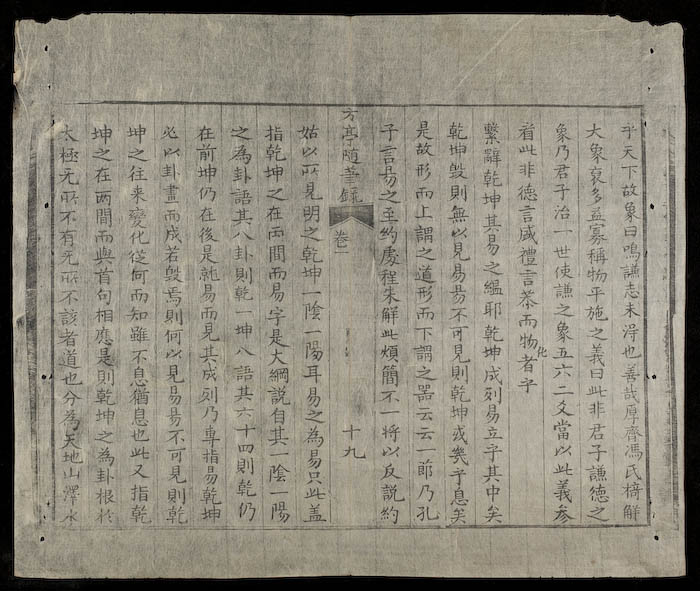 乎天下故象曰鳴謙志未淂也善㢤厚齋馮氏椅解
大象裒多益寡稱物平施之義曰此非君子謙徳之
象乃君子治一世使謙之象五六二爻當以此義参
看此非德言盛禮言恭而物化者乎
繫辭乾坤其易之緼耶乾坤成列易立乎其中矣
乾坤毁則無以見易易不可見則乾坤或幾乎息矣
是故形而上謂之道形而下謂之器云云一節乃孔
子言易之至約處程朱解此煩簡不一將以反説約
方亭随筆錄 卷一 十九
姑以所見明之乾坤一陰一陽耳易之為易只此盖
指乾坤之在两間而易字是大綱説自其一陰一陽
之為卦語其八卦則乾一坤八語其六十四則乾仍
在前坤仍在後是就易而見其成列乃專指易乾坤
必以卦畫而成若毁焉則何以見易易不可見則乾
坤之往来變化從何而知雖不息猶息也此又指乾
坤之在两間而與首句相應是則乾坤之為卦根於
太極无所不有无所不該者道也分為天地山澤水